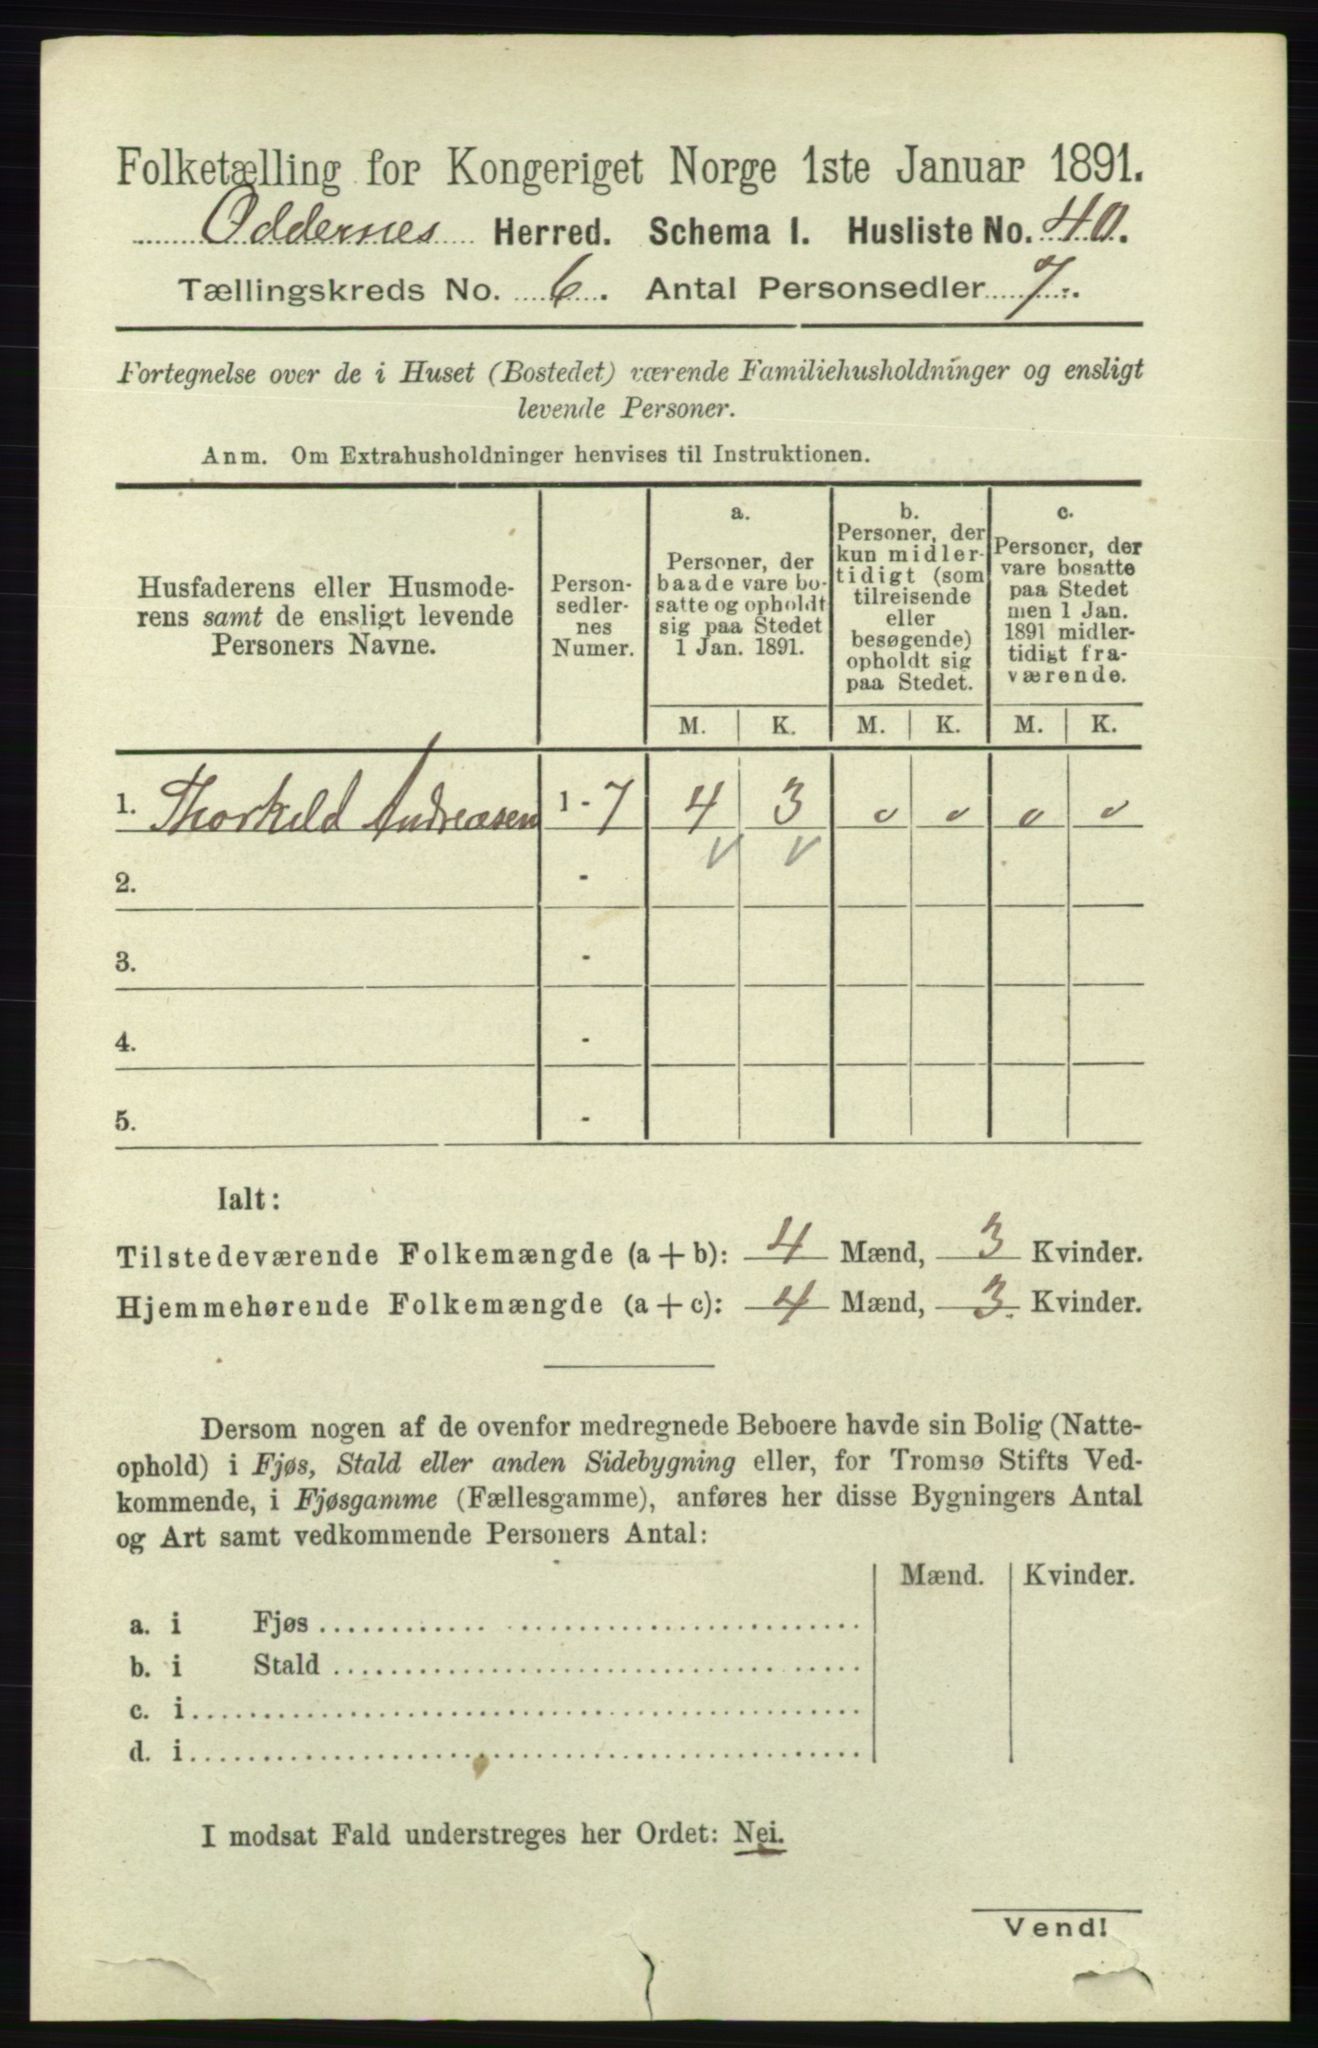 Folketælling for Kongeriget Norge 1ste Januar 1891.
Oddernes Herred. Schema I. Husliste No. 40.
Tællingskreds No. 6. Antal Personsedler 7.
Fortegnelse over de i Huset (Bostedet) værende Familiehusholdninger og ensligt
levende Personer.
Anm. Om Extrahusholdninger henvises til Instruktionen.
Husfaderens eller Husmode-
rens samt de ensligt levende
Personers Navne.
Person-
sedler-
nes
Numer.
a.
Personer, der
baade vare bo-
satte og opholdt
sig paa Stedet
1 Jan. 1891.
b.
Personer, der
kun midler-
tidigt (som
tilreisende
eller
besøgende)
opholdt sig
paa Stedet.
c.
Personer, der
vare bosatte
paa Stedet
men 1 Jan.
1891 midler-
tidigt fra-
værende.
M. K. M. K. M. K.
1. Thorkeld Andreasen 1 - 7 4 3 0 0 0 0
2. -
3. -
4. -
5. -
Ialt:
Tilstedeværende Folkemængde (a + b): 4 Mænd, 3 Kvinder.
Hjemmehørende Folkemængde (a + c): 4 Mænd, 3. Kvinder.
Dersom nogen af de ovenfor medregnede Beboere havde sin Bolig (Natte-
ophold) i Fjøs, Stald eller anden Sidebygning eller, for Tromsø Stifts Ved-
kommende, i Fjøsgamme (Fællesgamme), anføres her disse Bygningers Antal
og Art samt vedkommende Personers Antal:
Mænd. Kvinder.
a. i Fjøs
b. i Stald
c. i
d. i
I modsat Fald understreges her Ordet: Nei.
Vend!